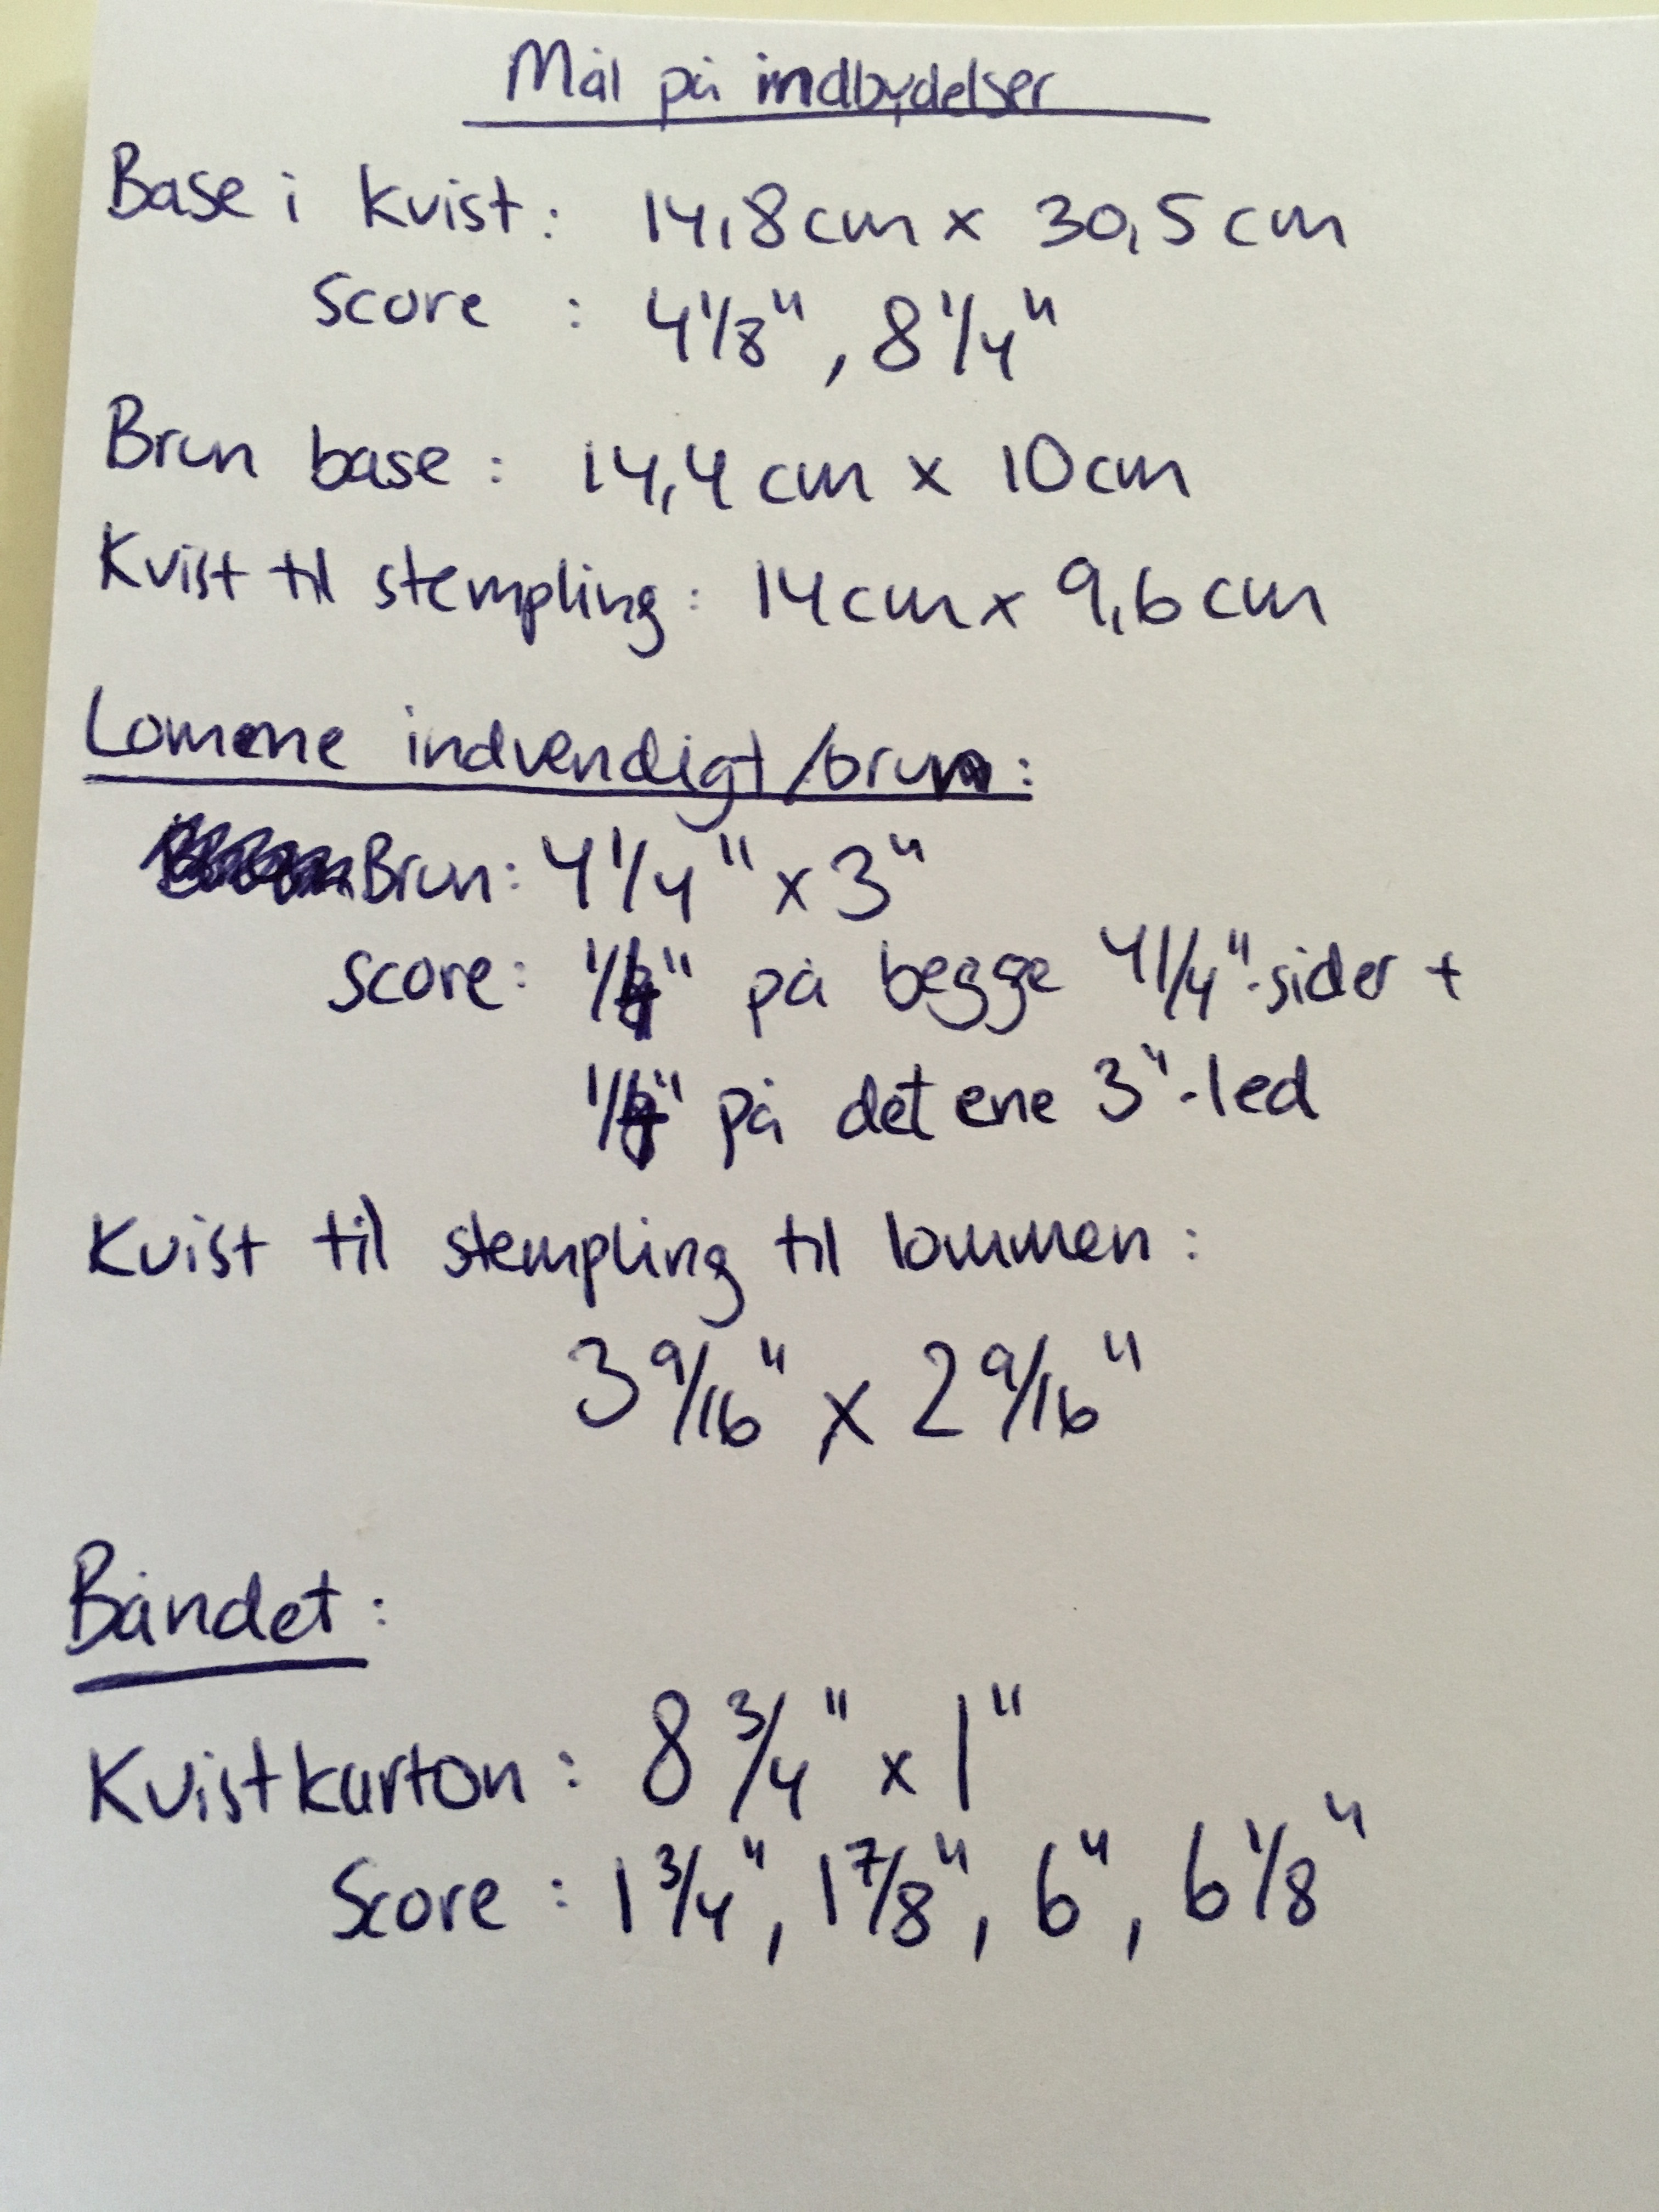 Mål på indbydelser
Base i kvist: 14,8 cm x 30,5 cm
score : 4 1/8", 8 1/4"
Brun base: 14,4 cm x 10 cm
Kvist til stempling: 14 cm x 9,6 cm
Lommene indvendigt/brun:
Brun: 4 1/4" x 3"
score: på begge 4 1/4"-sider +
på det ene 3"-led
Kvist til stempling til lommen:
3 9/16" x 2 9/16"
Båndet:
Kvistkarton: 8 3/4" x 1"
Score: 1 3/4", 1 7/8", 6", 6 1/8"